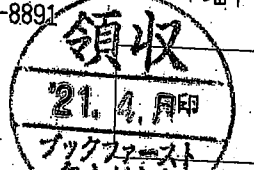 -8891
領収
'21. 4. 月印
ブックファースト